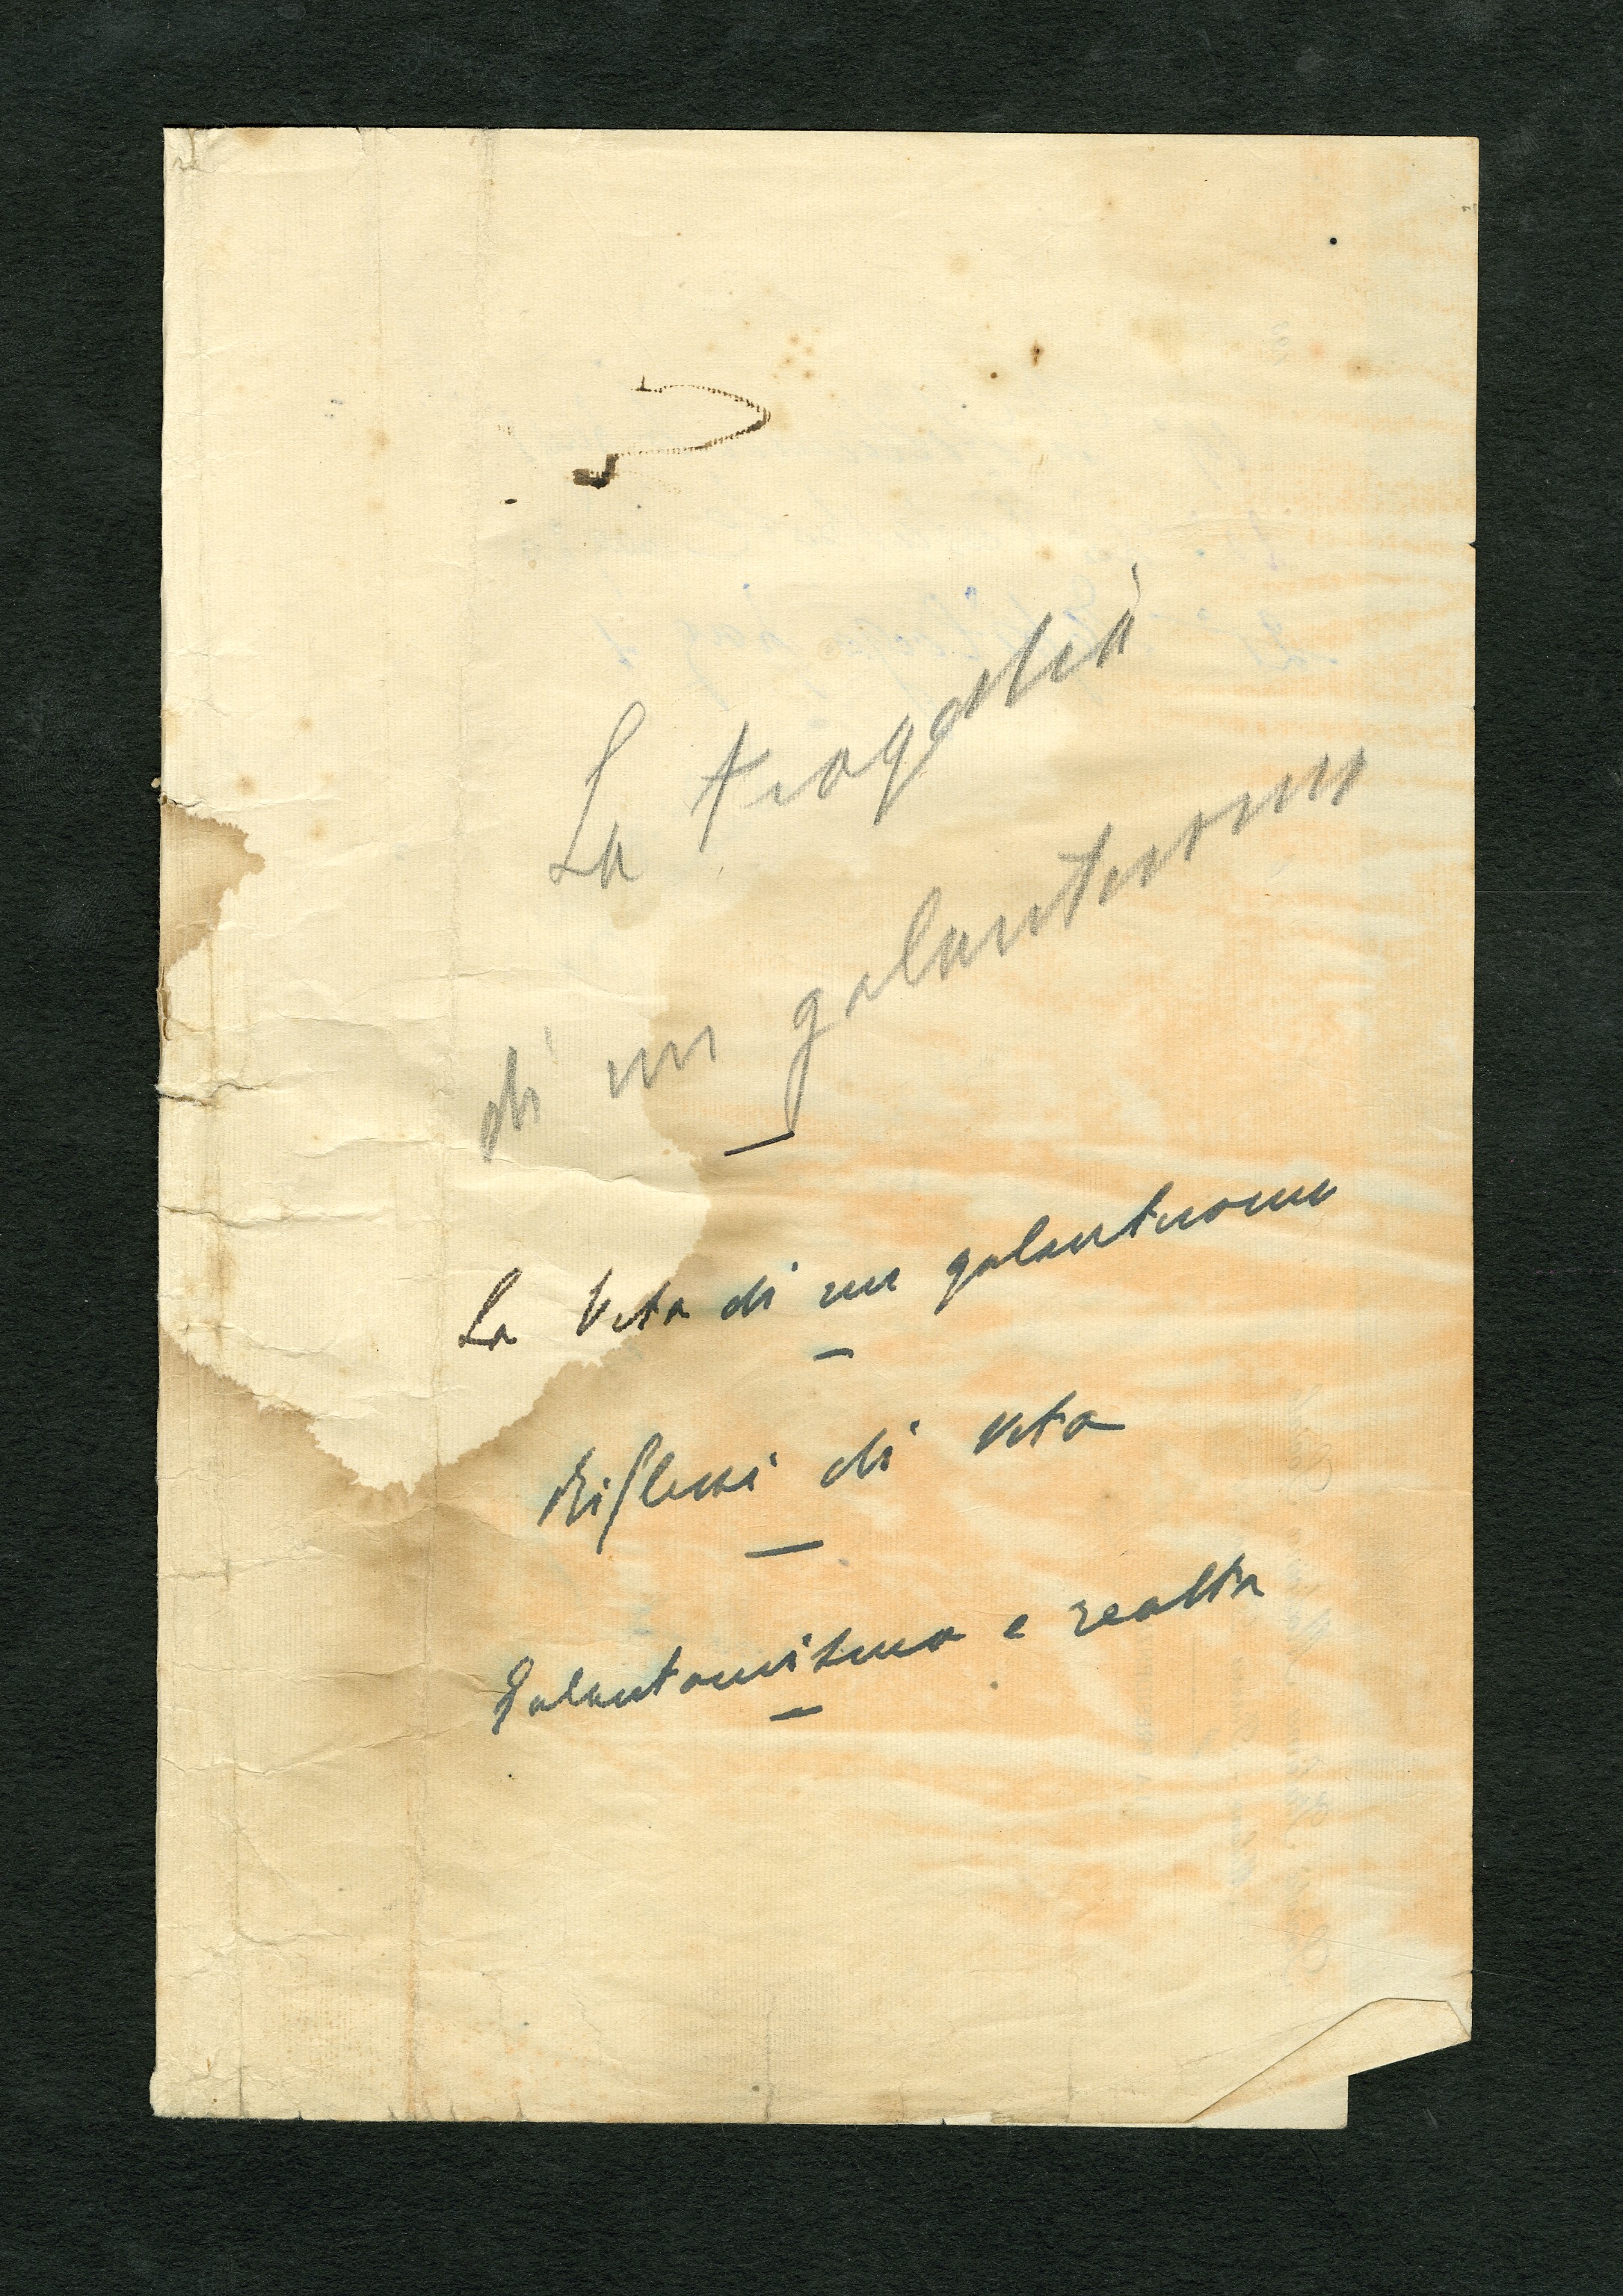 La tragedia
di un galantuomo
La Vita di un galantuomo
Riflessi di vita
Galantomismo e realtà